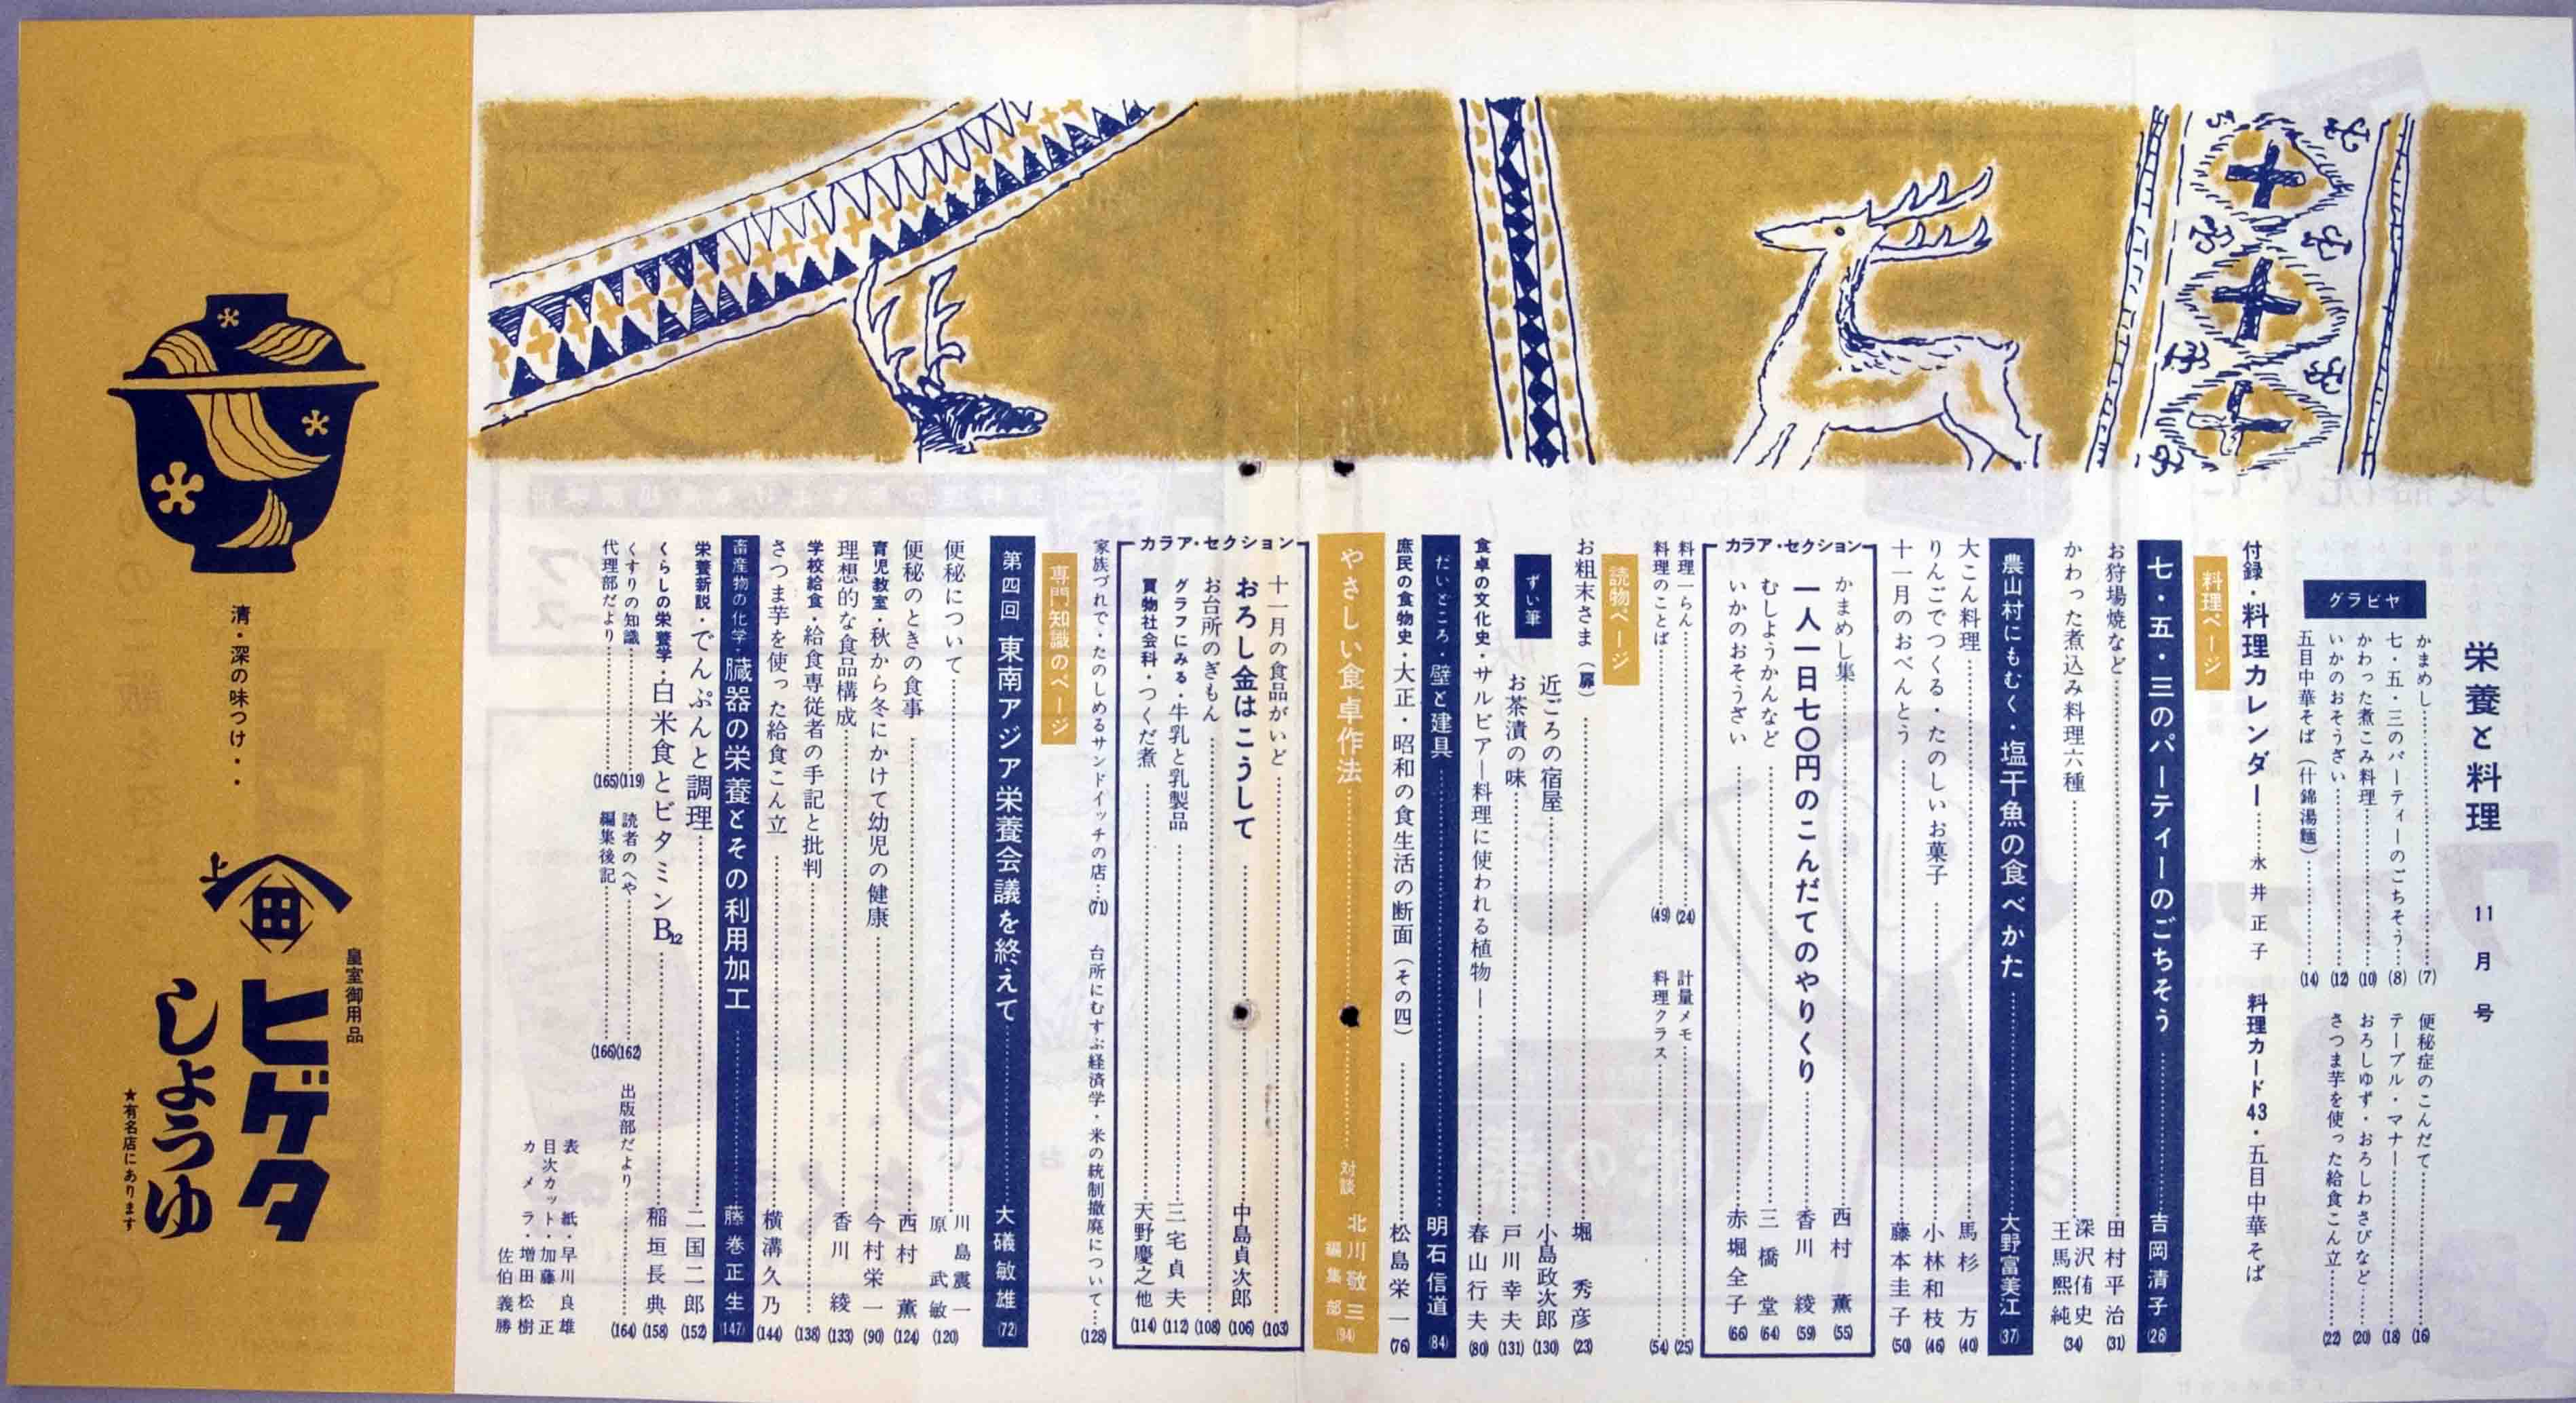 栄養と料理 11月号
グラビヤ
かまめし……(7)
七・五・三のパーティーのごちそう……(8)
かわった煮こみ料理……(10)
いかのおそうざい……(12)
五目中華そば（什錦湯麺）……(14)
便秘症のこんだて……(16)
テーブル・マナー……(18)
おろしゆず・おろしわさびなど……(20)
さつま芋を使った給食こん立……(22)
付録・料理カレンダー……永井正子 料理カード43・五目中華そば
料理ページ
七・五・三のパーティーのごちそう……吉岡清子(26)
お狩場焼など……田村平治(31)
かわった煮込み料理六種……深沢侑史 王馬熙純(34)
農山村にもむく・塩干魚の食べかた……大野富美江(37)
大こん料理……馬杉方(40)
りんごでつくる・たのしいお菓子……小林和枝(46)
十一月のおべんとう……藤本圭子(50)
カラア・セクション
かまめし集……西村薫(55)
一人一日七〇円のこんだてのやりくり……香川綾(59)
むしようかんなど……三橋堂(64)
いかのおそうざい……赤堀全子(66)
料理一らん……(24)
計量メモ……(25)
料理のことば……(49)
料理クラス……(54)
読物ページ
お粗末さま（扉）……堀秀彦(23)
ずい筆
近ごろの宿屋……小島政次郎(130)
お茶漬の味……戸川幸夫(131)
食卓の文化史・サルビアー料理に使われる植物ー……春山行夫(80)
だいどころ・壁と建具……明石信道(84)
庶民の食物史・大正・昭和の食生活の断面（その四）……松島栄一(76)
やさしい食卓作法……対談 北川敬三 編集部(94)
カラア・セクション
十一月の食品がいど……(103)
おろし金はこうして……中島貞次郎(106)
お台所のぎもん……(108)
グラフにみる・牛乳と乳製品……三宅貞夫(112)
買物社会科・つくだ煮……天野慶之他(114)
家族づれで・たのしめるサンドイッチの店……(71)
台所にむすぶ経済学・米の統制撤廃について……(128)
専門知識のページ
第四回 東南アジア栄養会議を終えて……大礒敏雄(72)
便秘について……川島震一 原武敏(120)
便秘のときの食事……西村薫(124)
育児教室・秋から冬にかけて幼児の健康……今村栄一(90)
理想的な食品構成……香川綾(133)
学校給食・給食専従者の手記と批判……(138)
さつま芋を使った給食こん立……横溝久乃(144)
畜産物の化学・臓器の栄養とその利用加工……藤巻正生(147)
栄養新説・でんぷんと調理……二国二郎(152)
くらしの栄養学・白米食とビタミンB12……稲垣長典(158)
くすりの知識……(119)
読者のへや……(162)
出版部だより……(164)
代理部だより……(165)
編集後記……(166)
表紙・早川良雄
目次カット・加藤正
カメラ・増田松樹
佐伯義勝
清・深の味つけ・・
上
田
皇室御用品
ヒゲタ
しょうゆ
★有名店にあります